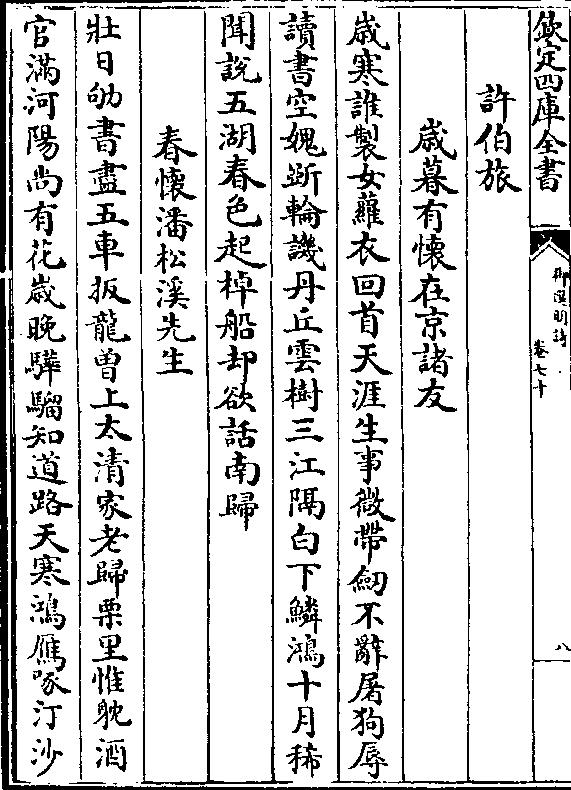 欽定四庫全書
御選明詩
卷七十
八
許伯旅
歲暮有懷在京諸友
歲寒誰製女蘿衣回首天涯生事微帶劒不辭屠狗辱
讀書空媿斵輪譏丹丘雲樹三江隔白下鱗鴻十月稀
聞說五湖春色起棹船却欲話南歸
春懷潘松溪先生
壯日劬書盡五車扳龍曽上太清家老歸栗里惟躭酒
官滿河陽尚有花歲晚驊騮知道路天寒鴻雁啄汀沙